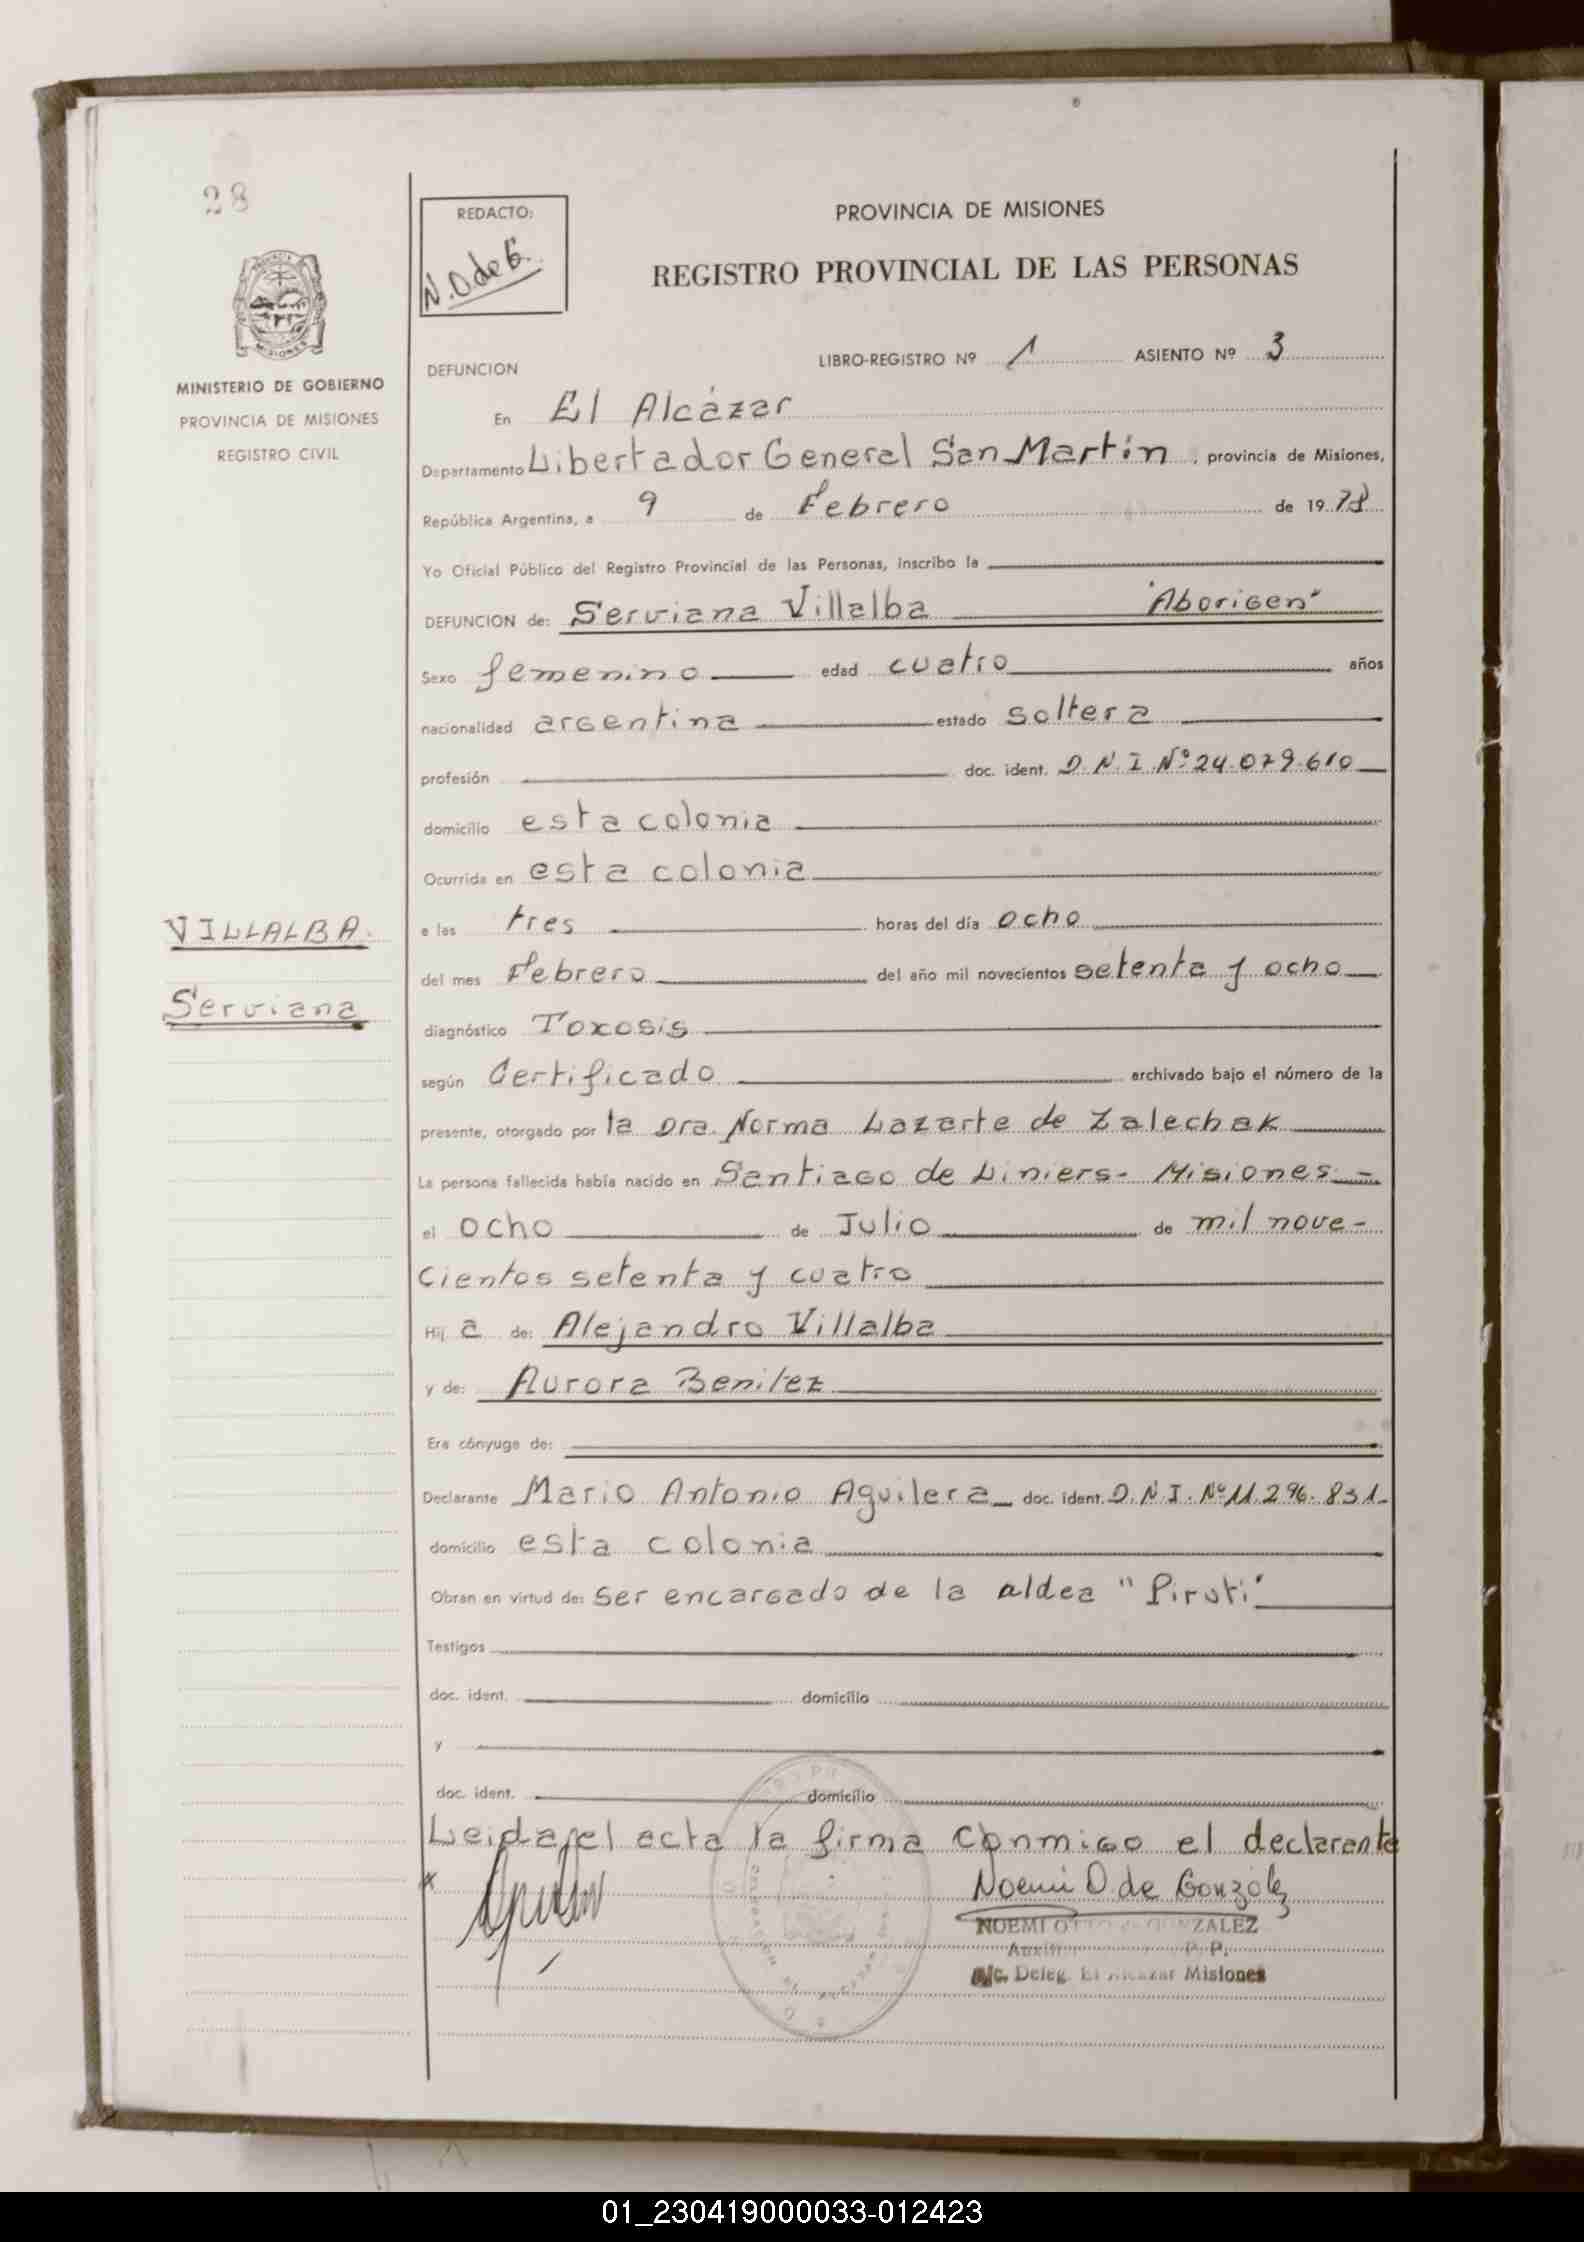 28
REDACTO:
N.O.de G.
PROVINCIA DE MISIONES
REGISTRO PROVINCIAL DE LAS PERSONAS
MINISTERIO DE GOBIERNO
PROVINCIA DE MISIONES
REGISTRO CIVIL
DEFUNCION
LIBRO-REGISTRO Nº 1 ASIENTO Nº 3
En El Alcázar
Departamento Libertador General San Martín, provincia de Misiones,
República Argentina, a 9 de Febrero de 1978
Yo Oficial Público del Registro Provincial de las Personas, inscribo la
DEFUNCION de: Serviana Villalba "Aborigen"
Sexo femenino edad cuatro años
nacionalidad argentina estado soltera
profesión doc. ident. D.N.I. Nº 24.079.610
domicilio esta colonia
Ocurrida en esta colonia
VILLALBA
Serviana
a las tres horas del día ocho
del mes Febrero del año mil novecientos setenta y ocho
diagnóstico Toxosis
según Certificado archivado bajo el número de la
presente, otorgado por la Dra. Norma Lazarte de Zalechak
La persona fallecida había nacido en Santiago de Liniers - Misiones -
el ocho de Julio de mil nove-
cientos setenta y cuatro
Hij a de: Alejandro Villalba
y de: Aurora Benitez
Era cónyuge de:
Declarante Mario Antonio Aguilera doc. ident. D.N.I. Nº 11.296.831-
domicilio esta colonia
Obran en virtud de: ser encargado de la aldea "Piruti"
Testigos
doc. ident. domicilio
y
doc. ident. domicilio
Leida el acta la firma conmigo el declarante
Noemi O. de González
NOEMI OTTO de GONZALEZ
P. P.
a/c. Deleg. El Alcazar Misiones
MISIONES
01_230419000033-012423